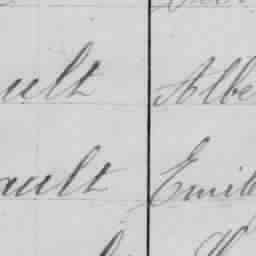 ult Albe
ault Emil